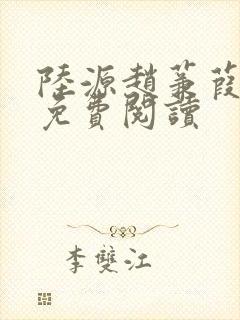 陸源趙蒹葭
免費閱讀
李雙江